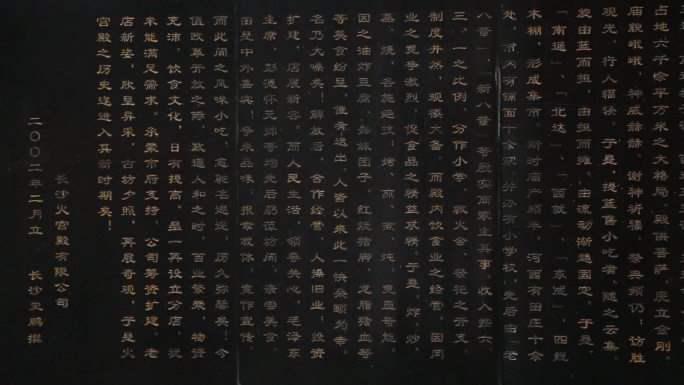 占地六千余平方米之大格局。殿供菩萨，庑立金刚
庙貌峨峨，神威赫赫。谢神祈福，祭典频仍；访胜
观光，行人辐辏。于是，提蓝售小吃者，随之云集。
旋由蓝而担，由担而摊，由流动渐趋固定。于是，
「南通」、「北达」、「西就」、「东成」，四经
木棚，形成集市。斯时庙产颇丰，河西有田庄十余
处，市内有铺面十余家，并办有小学校，先后由「老
八董」、「新八董」等殷实商家主其事。收入按六
三、一之比例，分作小学、救火会、祭祀之开支。
制度井然，规模大备。而殿内饮食业之经营，因同
业之竞争激烈，促食品之精益求精。于是，炸、炒、
蒸、烧，各施绝艺；烤、煎、煮、炖，竞显奇能。
因之油炸豆腐、姊妹团子、红烧猪脚、龙脂猪血等
等美食纷呈，佳肴迭出。人皆以来此一快朵颐为幸。
名乃大噪矣！解放后，合作经营，人操旧业；投资
扩建，店展新容。而人民生活，领导关心，毛泽东
主席、彭德怀元帅等均先后躬莅坊间，亲尝美食
由是中外嘉宾，争来品味；报章载体，竞作宣传
而此间之风味小吃，愈驰名遐迩，历久弥馨矣！今
值改革开放之际，政通人和之时，百业繁荣，物资
充沛。饮食文化，日有提高。虽一再设立分店，犹
未能满足需求。承蒙市府支持，公司筹资扩建。老
店新姿，欣呈异采，古坊夕照，再展奇观，于是火
宫殿之历史遂进入其新时期矣！
长沙火宫殿有限公司
二〇〇二年二月立　长沙史鹏撰